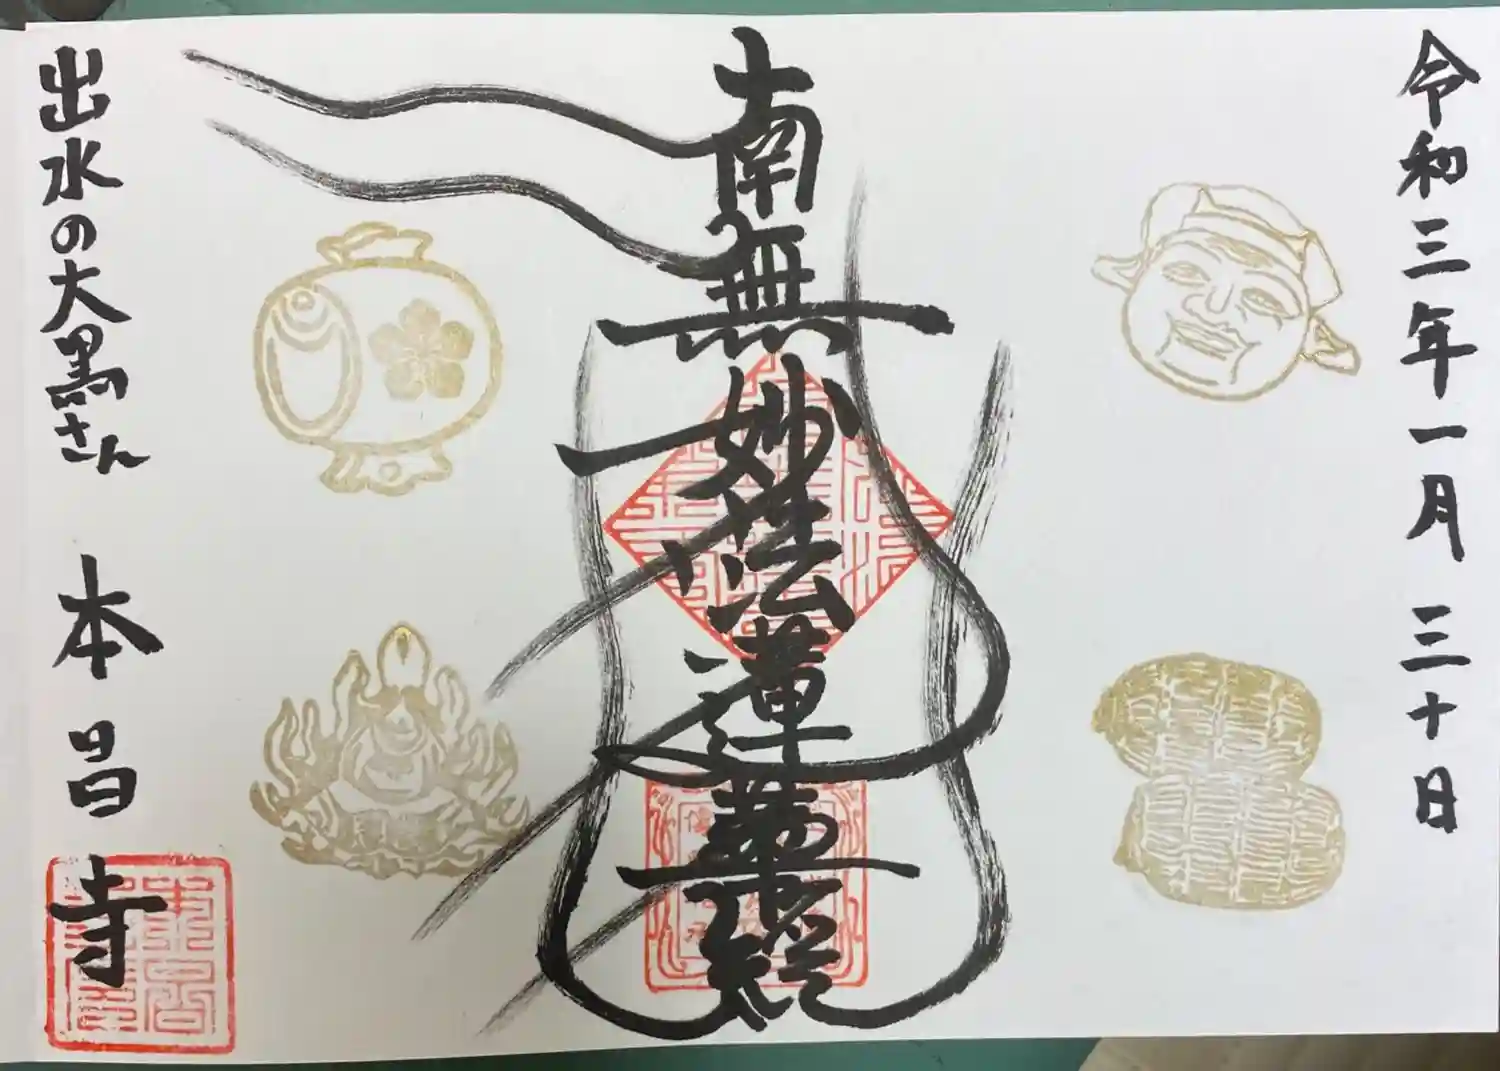 令和三年一月三十日
南無妙法蓮華経
出水の大黒さん 本昌寺